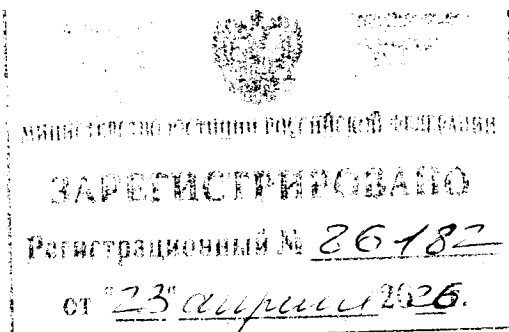 МИНИСТЕРСТВО ЮСТИЦИИ РОССИЙСКОЙ ФЕДЕРАЦИИ
ЗАРЕГИСТРИРОВАНО
Регистрационный № 86182
от "23" апреля 2026.